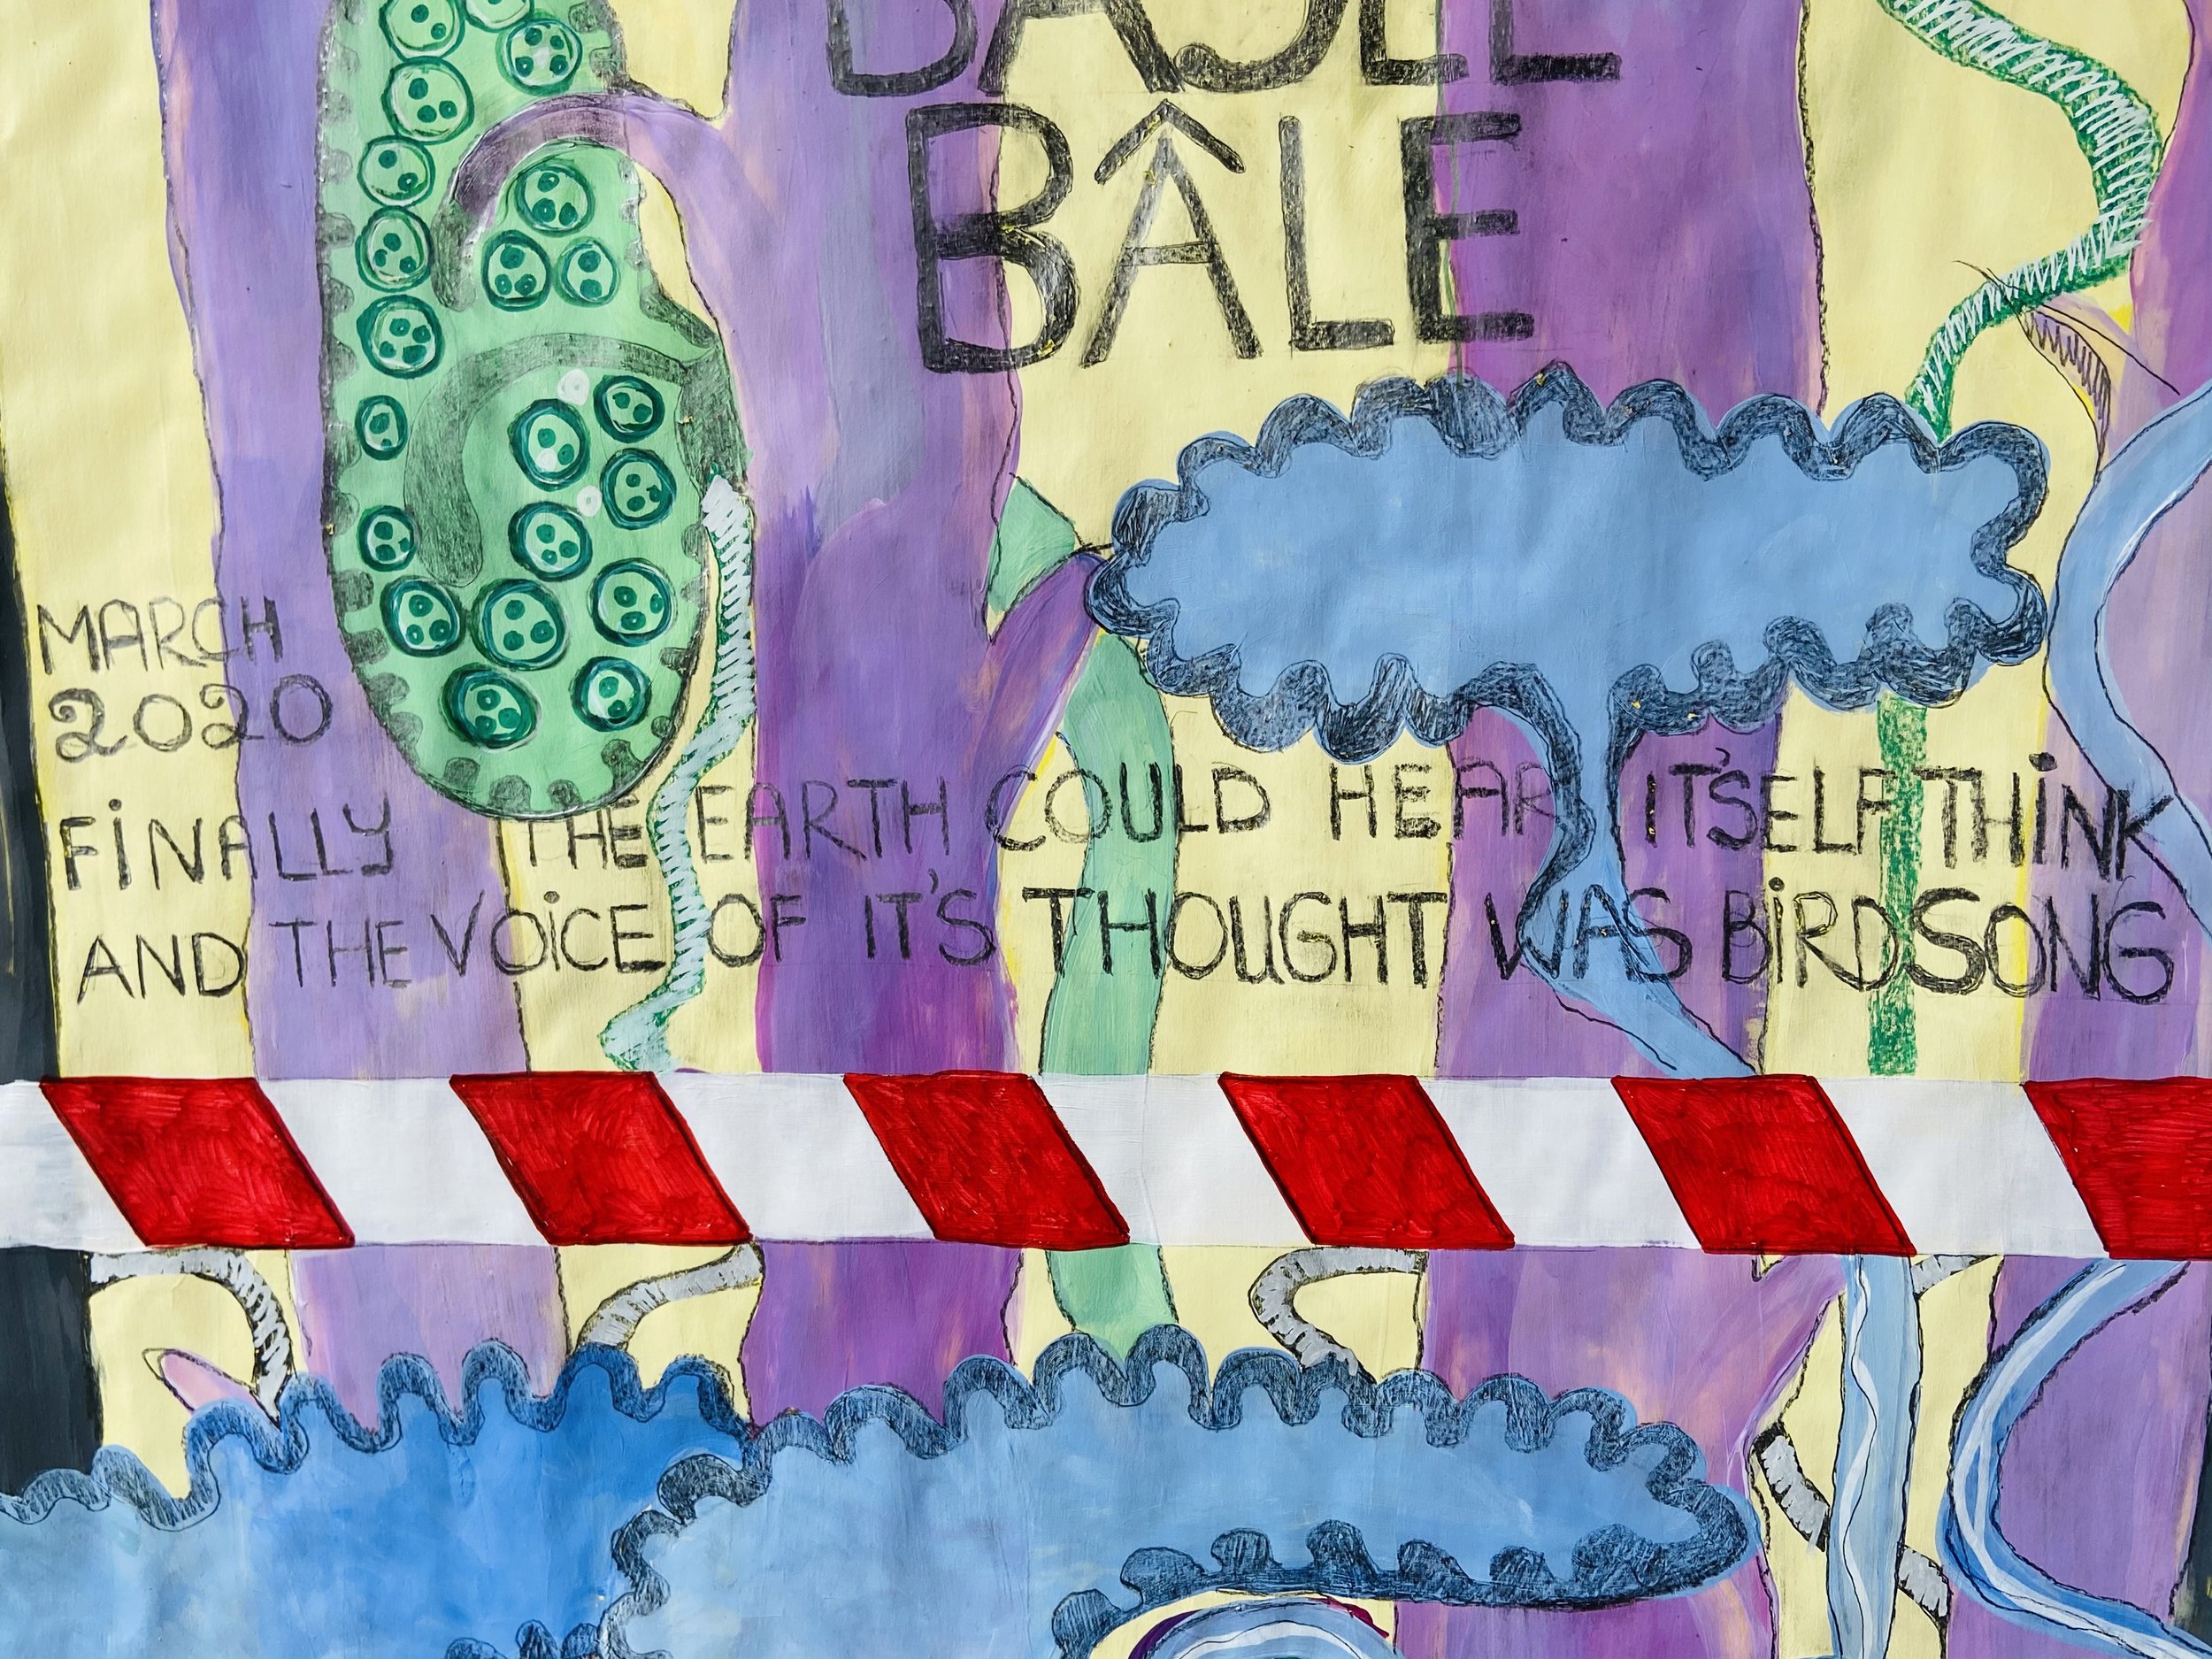 BÂLE
MARCH
2020
FiNALLY THE EARTH COULD HEAR IT'SELF THiNK
AND THE VOiCE OF IT'S THOUGHT WAS BiRDSONG